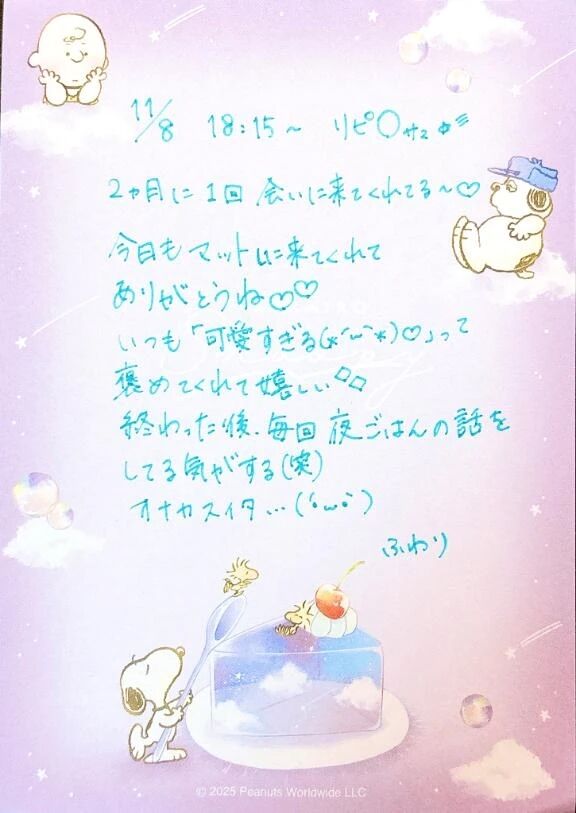 11/8 18:15~ リピ○サマ
2ヵ月に1回 会いに来てくれてる~♡
今日もマットに来てくれて
ありがとうね♡♡
いつも「可愛すぎる(*´ω`*)♡」って
褒めてくれて嬉しい
終わった後、毎回 夜ごはんの話を
してる気がする(笑)
オナカスイタ…(´•ω•`)
ふわり
© 2025 Peanuts Worldwide LLC